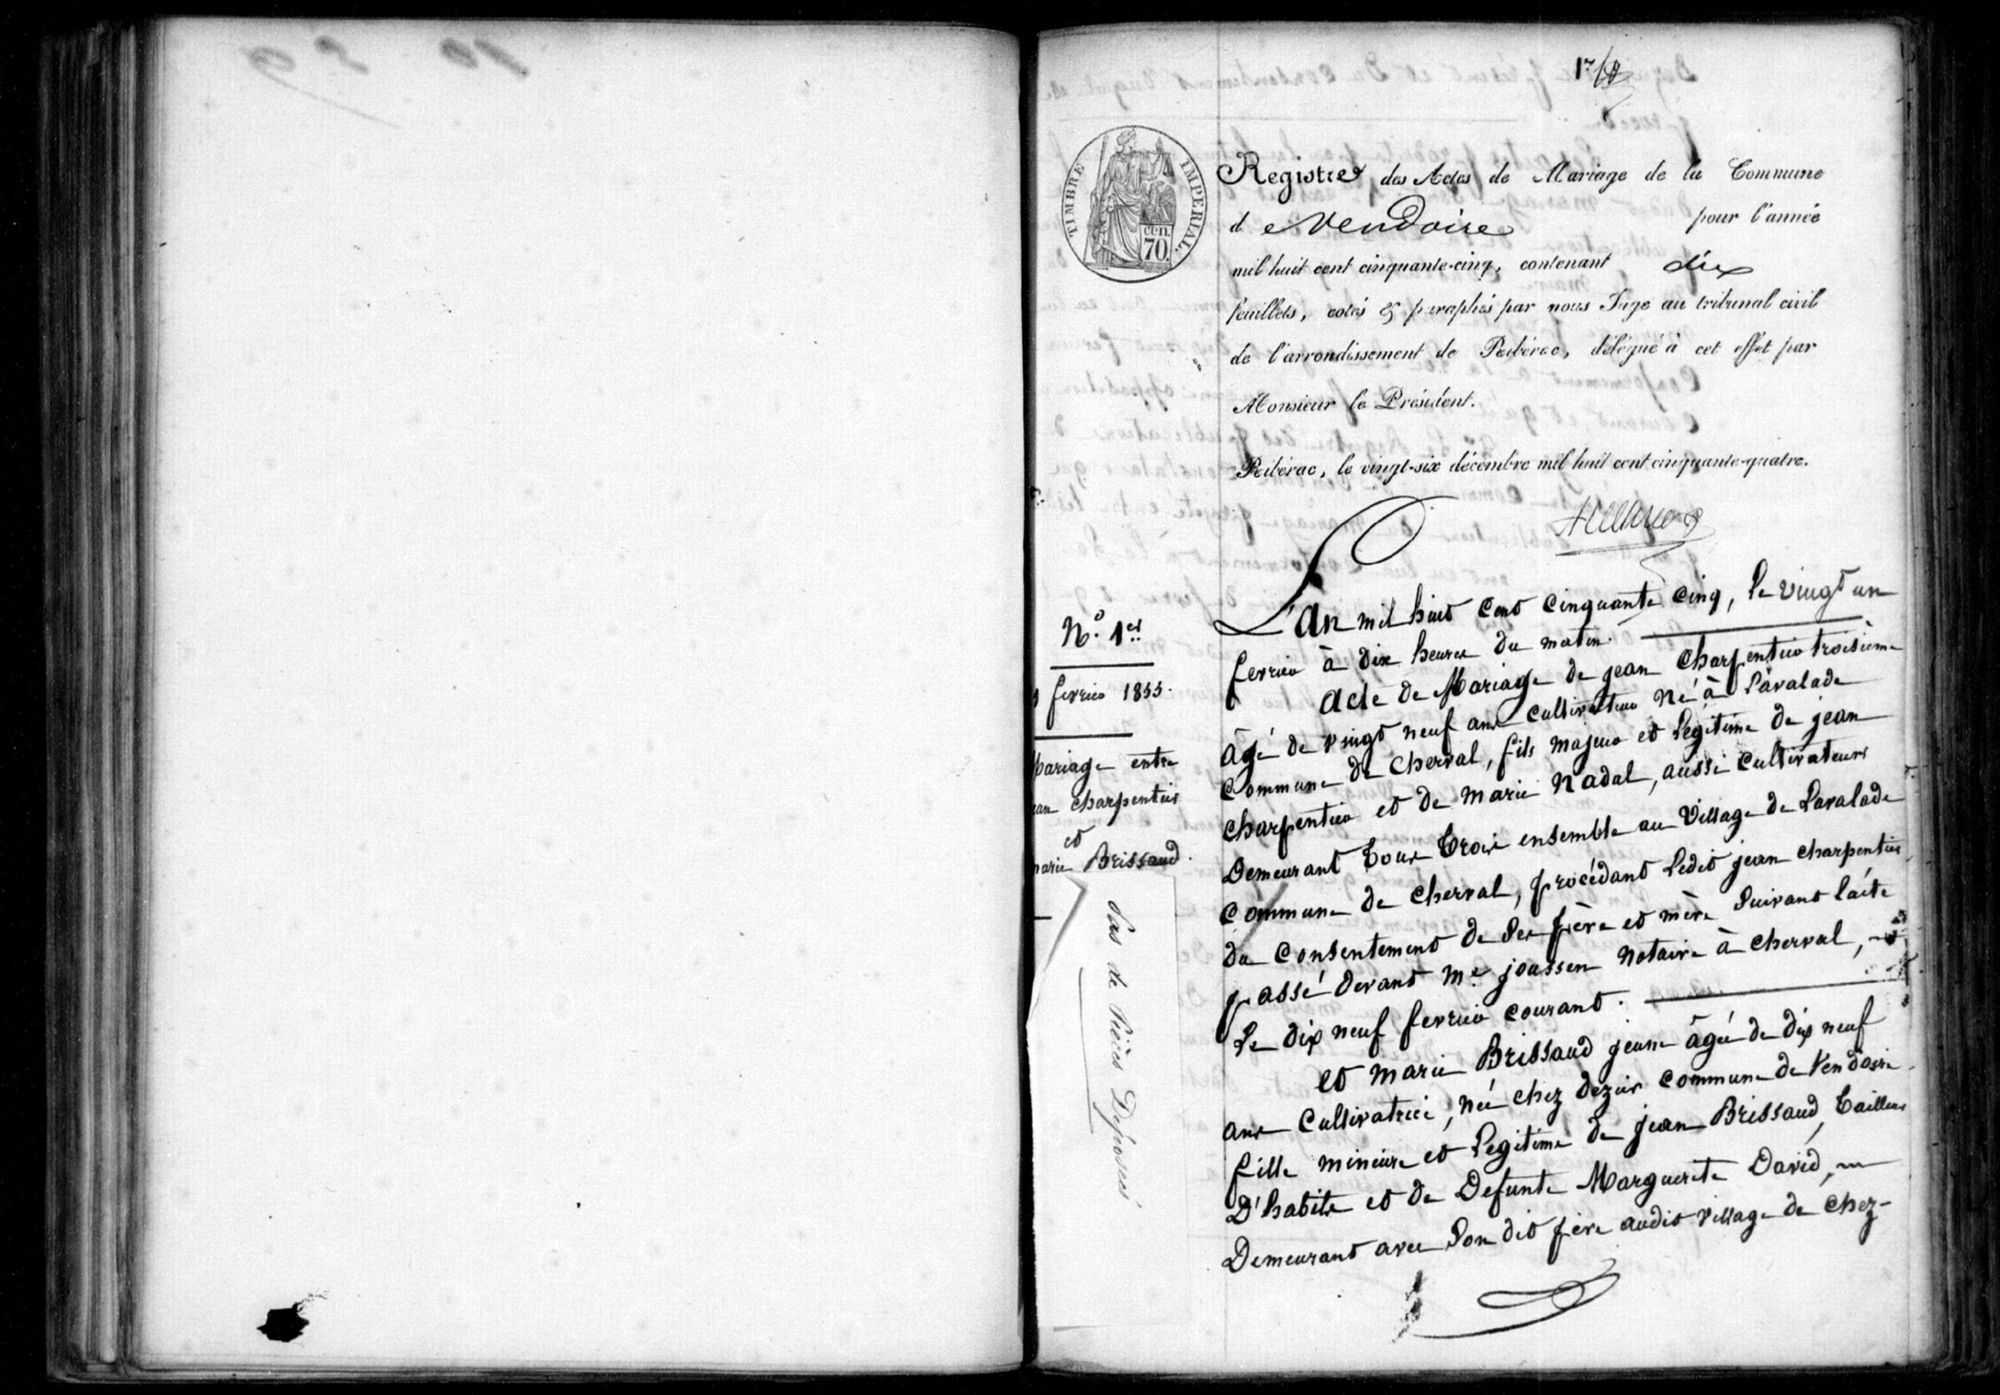 TIMBRE IMPERIAL
cen.
70.
Registre des Actes de Mariage de la Commune
d e Vendoire pour l'année
mil huit cent cinquante-cinq, contenant dix
feuillets, cotés & paraphés par nous Juge au tribunal civil
de l'arrondissement de Ribérac, délégué à cet effet par
Monsieur le Président.
Ribérac, le vingt-six décembre mil huit cent cinquante-quatre.
N.o 1er
fevrier 1855.
Mariage entre
jean charpentier
et
marie Brissaud.
Pas de Pièces Déposées
L'an mil huit cent cinquante cinq, le vingt un
fevrier à dix heures du matin.
Acte de Mariage de jean charpentier troisième
âgé de vingt neuf ans cultivateur né à Lavalade
commune de cherval, fils majeur et legitime de jean
charpentier et de marie Nadal, aussi cultivateurs
Demeurant tous trois ensemble au village de Lavalade
commune de cherval, procédant ledit jean charpentier
du consentement de ses père et mère suivant l'acte
passé devant me joussen notaire à cherval,
le dix neuf fevrier courant.
et marie Brissaud jeune âgée de dix neuf
ans cultivatrice, née chez dezir commune de Vendoire
fille mineure et legitime de jean Brissaud, tailleur
D'habits et de Defunte Marguerite David,
Demeurant avec son dit père audit village de chez-